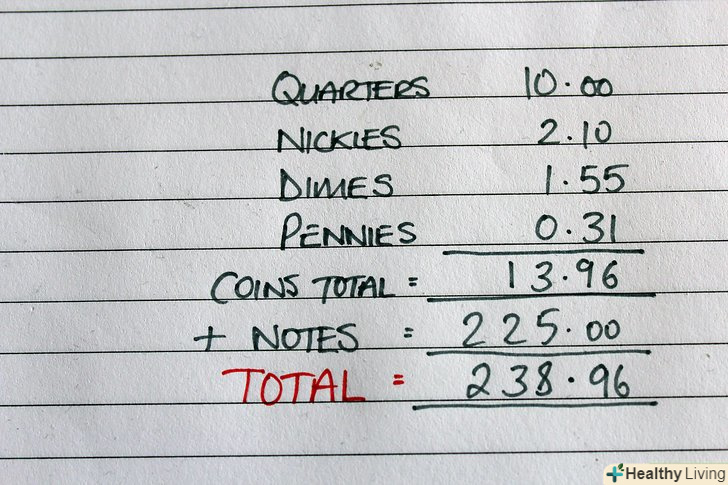 QUARTERS 10.00
NICKIES 2.10
DIMES 1.55
PENNIES 0.31
COINS TOTAL = 13.96
+ NOTES = 225.00
TOTAL = 238.96
Healthy Living